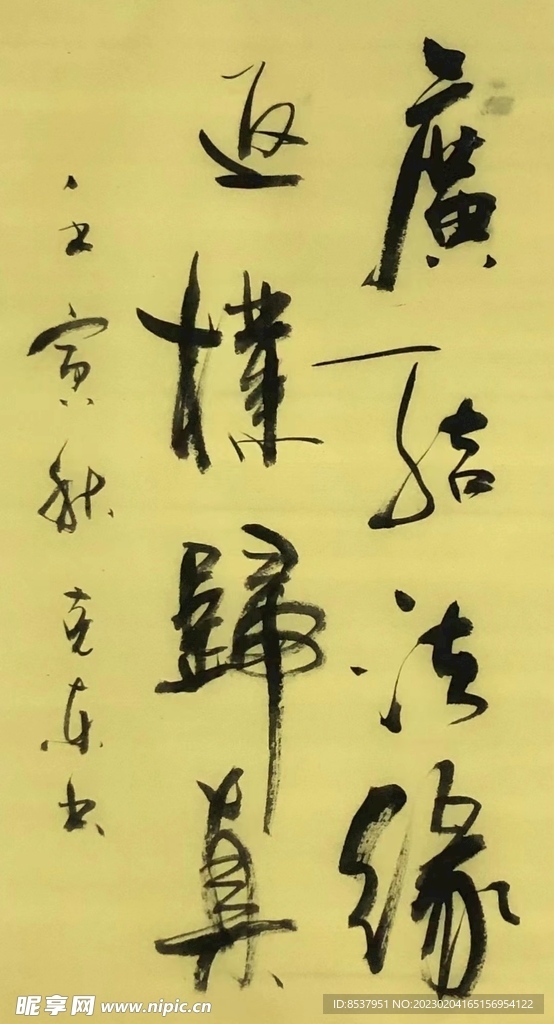 廣結法緣
返樸歸真
壬寅秋克東书
昵享网 www.nipic.cn
ID:8537951 NO:20230204165156954122